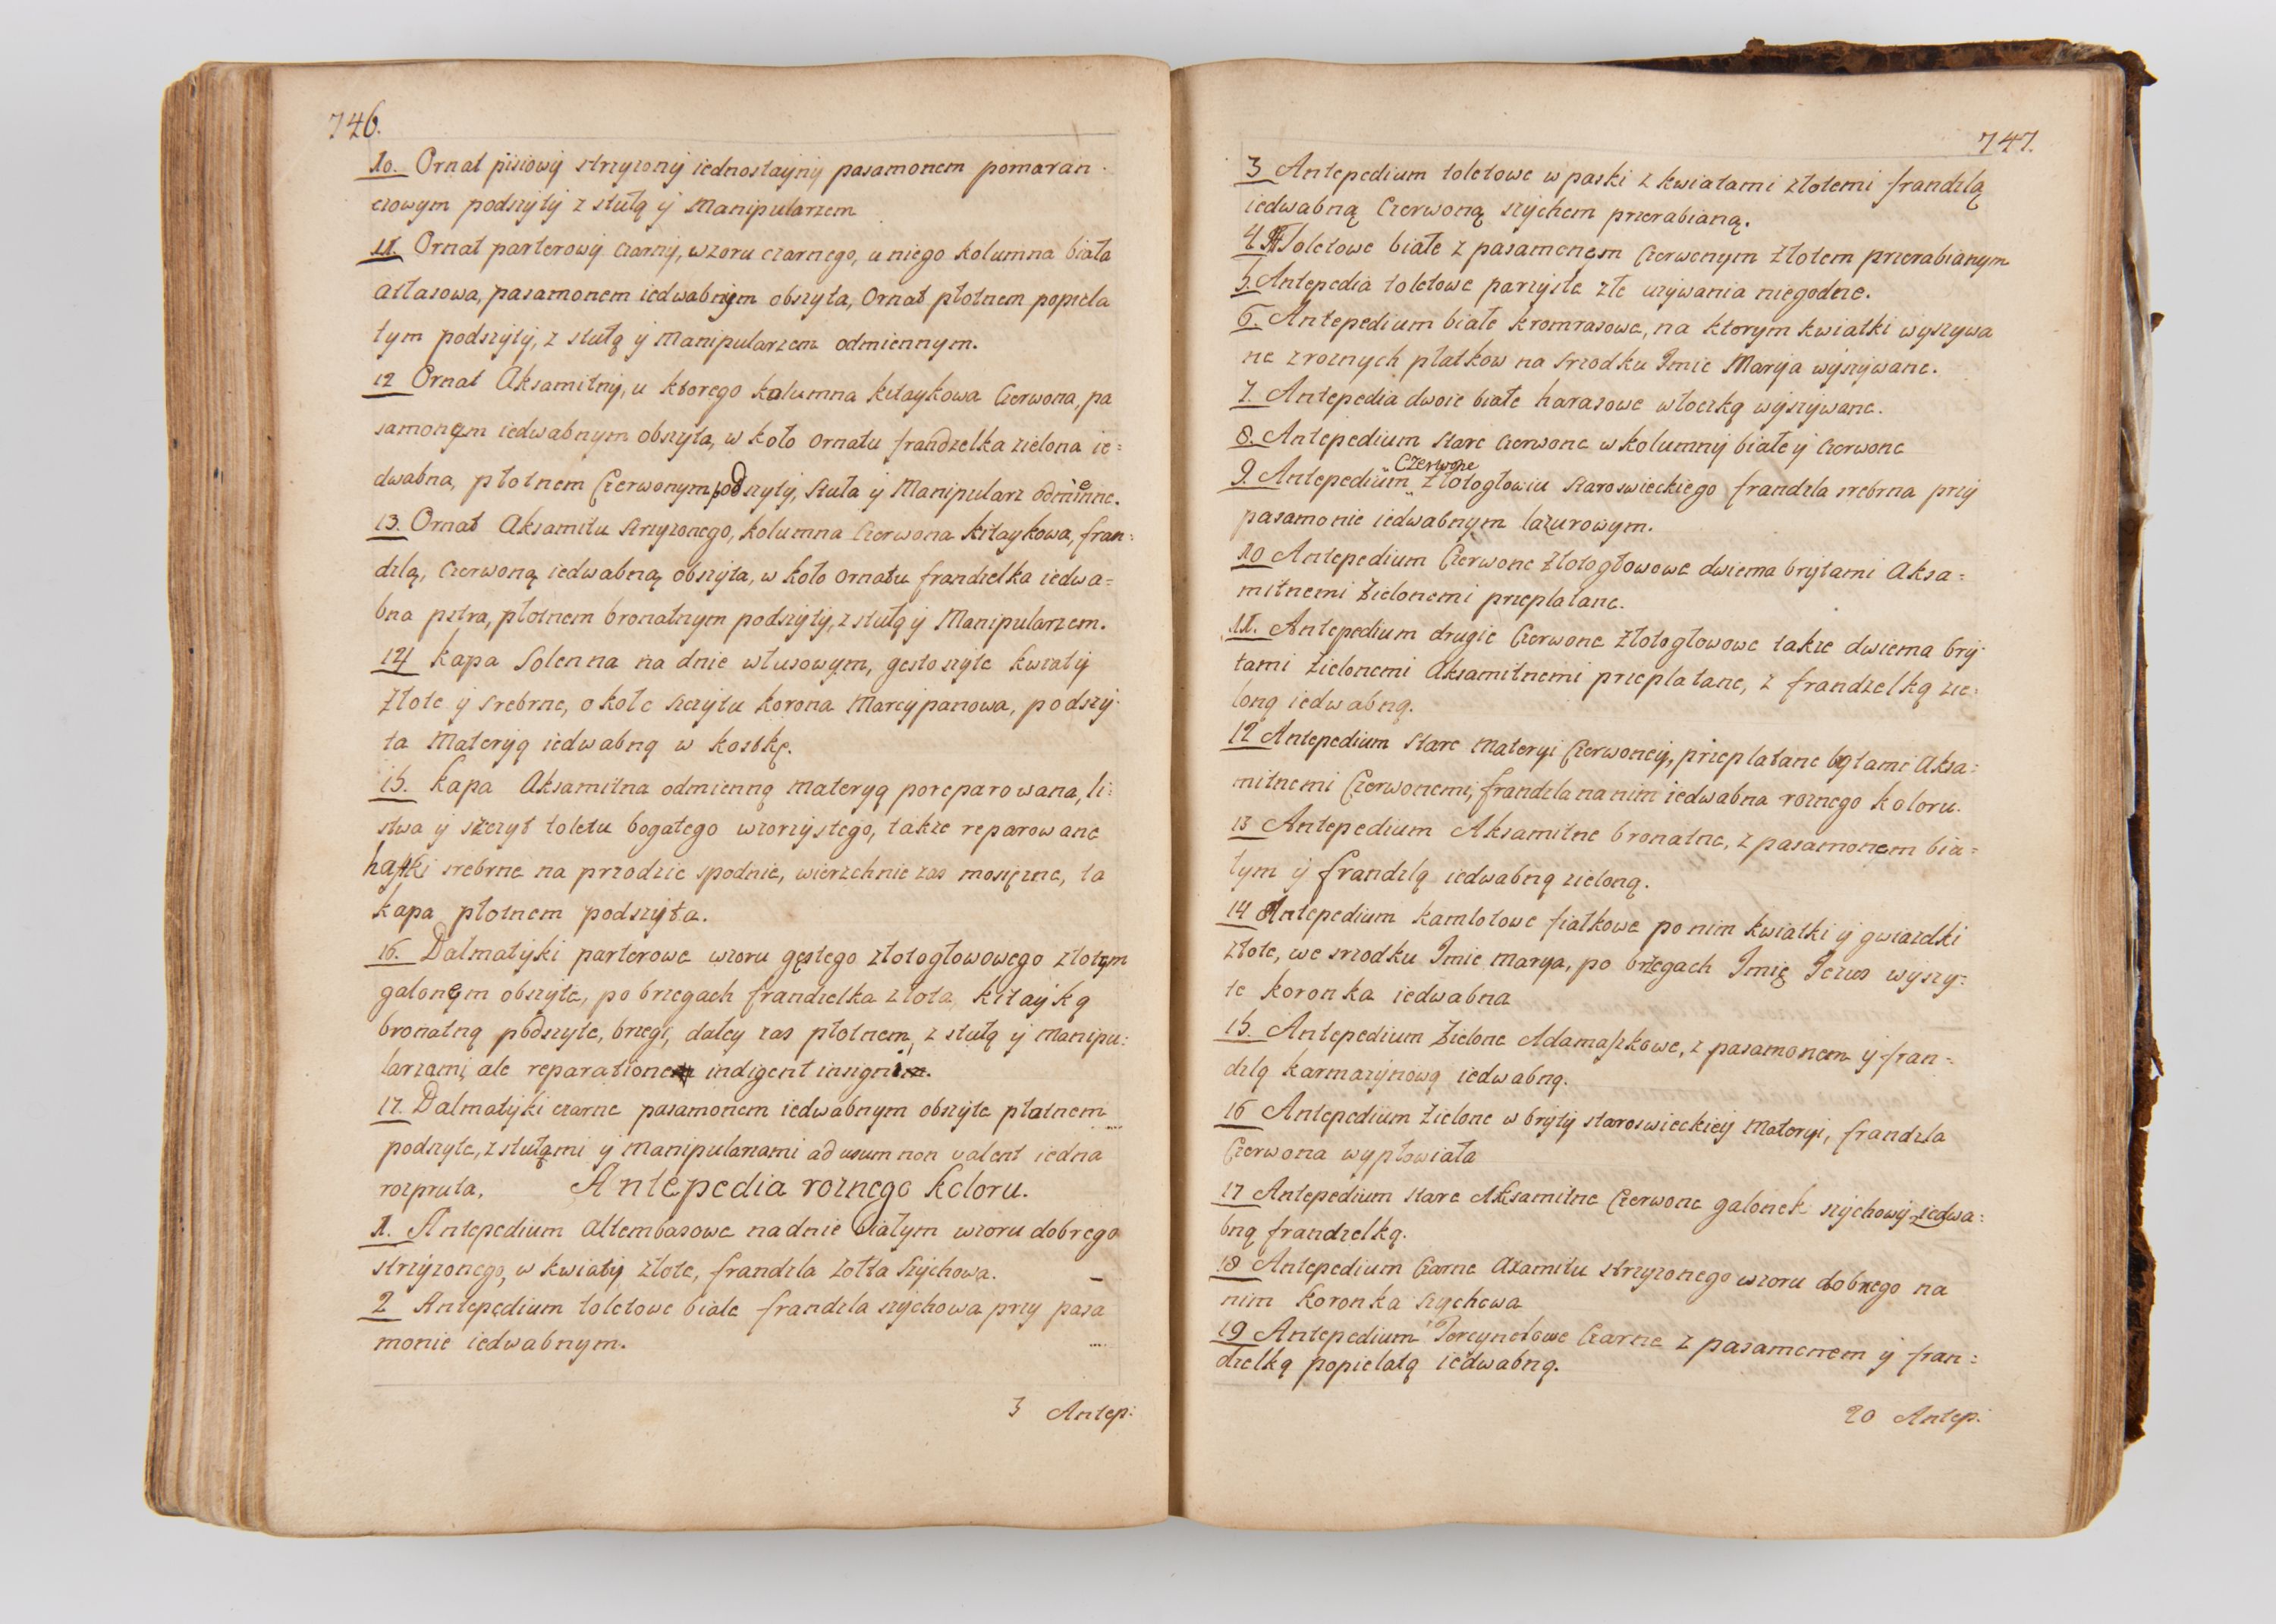 746.
10. Ornat pisiowy strzyzony iednostayny pasamonem pomaran
czowym podszyty z stułą y Manipularzem
11. Ornat parterowy czarny, wzoru czarnego, u niego kolumna biała
atłasowa, pasamonem iedwabnym obszyta, Ornat płotnem popiela
tym podszyty, z stułą y Manipularzem odmiennym.
12 Ornat Aksamitny, u ktorego kolumna kitaykowa Czerwona, pa
samonem iedwabnym obszyta, w koło ornatu frandzelka zielona ie=
dwabna, płotnem Czerwonym podszyty, Stuła y Manipularz odmienne.
13. Ornat Aksamitu strzyzonego, kolumna Czerwona kitaykowa, fran=
dzlą, czerwoną iedwabną obszyta, w koło ornatu frandzelka iedwa=
bna pstra, płotnem bronatnym podszyty, z stułą y Manipularzem.
14 kapa Solenna na dnie włusowym, gęsto szyte kwiaty
złote y srebrne, okolo szczytu korona Marcypanowa, podszy=
ta Materyą iedwabną w kostkę.
15. kapa Aksamitna odmienną materyą poreparowana, li=
stwa y szczyt toletu bogatego wzorzystego, takze reparowane
haftki srebrne na przodzie spodnie, wierzchnie zas mosięzne, ta
kapa płotnem podszyta.
16. Dalmatyki parterowe wzoru gęstego złotogłowowego złotym
galonem obszyte, po brzegach frandzelka złota, kitayką
bronatną podszyte, brzegi, daley zas płotnem, z stułą y manipu=
larzami, ale reparatione indigent insigni.
17. Dalmatyki czarne pasamonem iedwabnym obszyte płotnem
podszyte, z stułami y manipularzami ad usum non valent iedna
rozpruta. Antepedia roznego koloru.
1. Antepedium altembasowe na dnie białym wzoru dobrego
strzyzonego, w kwiaty złote, frandzla zołta szychowa.
2 Antepedium toletowe biale frandzla szychowa przy pasa
monie iedwabnym.
3 Antep:
747.
3 Antepedium toletowe w paski z kwiatami złotemi frandzlą
iedwabną Czerwoną szychem przerabianą.
4 Toletowe białe z pasamonem Czerwonym złotem przerabianym
5. Antepedia toletowe parzyste złe uzywania niegodne.
6. Antepedium białe kromrasowe, na ktorym kwiatki wyszywa
ne z roznych płatkow na srzodku Imie Marya wyszywane.
7. Antepedia dwoie białe harasowe włoczką wyszywane.
8. Antepedium stare czerwone w kolumny białe y czerwone
Czerwone
9. Antepedium złotogłowiu staroswieckiego frandzla srebrna przy
pasamonie iedwabnym lazurowym.
10 Antepedium Czerwone złotogłowowe dwiema brytami Aksa=
mitnemi zielonemi przeplatane.
11. Antepedium drugie Czerwone złotogłowowe takze dwiema bry
tami zielonemi Aksamitnemi przeplatane, z frandzelką zie=
loną iedwabną.
12 Antepedium stare materyi Czerwoney, przeplatane bytami Aksa=
mitnemi Czerwonemi, frandzla na nim iedwabna roznego koloru.
13 Antepedium Aksamitne bronatne, z pasamonem bia=
łym y frandzlą iedwabną zieloną.
14 Antepedium kamlotowe fiałkowe po nim kwiatki y gwiazdki
złote, we srzodku Imie Marya, po brzegach Imię Iezus wyszy=
te koronka iedwabna
15. Antepedium Zielone Adamaszkowe, z pasamonem y fran=
dzlą karmazynową iedwabną.
16 Antepedium Zielone w bryty staroswieckiey Materyi, frandzla
Czerwona wypłowiała
17 Antepedium stare Aksamitne Czerwone galonek szychowy z iedwa=
bną frandzelką.
18 Antepedium Czarne axamitu strzyzonego wzoru dobrego na
nim koronka szychowa
19 Antepedium Forcynelowe Czarne z pasamonem y fran=
dzelką popielatą iedwabną.
20 Antep: